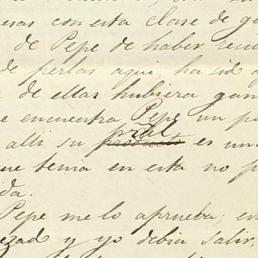 esas con esta clase de g
de Pepe de haber recu
de perlas aqui ha sid
de ellas hubiera gan
e encuentra Pepe un p
pral
alli su producto es un
que tenia en esta no p
ida.
Pepe me lo aprueba, en
ezad y yo debia salir,